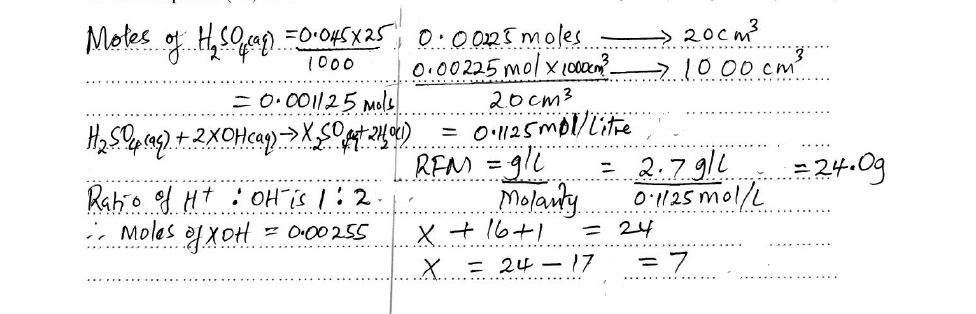 Moles of H₂SO₄(aq) = 0.045 x 25
1000
= 0.001125 mols
H₂SO₄(aq) + 2XOH(aq) → X₂SO₄(aq) + 2H₂O(l)
Ratio of H⁺ : OH⁻ is 1 : 2.
∴ Moles of XOH = 0.00255
0.00225 moles → 20cm³
0.00225 mol x 1000cm³ → 1000 cm³
20cm³
= 0.1125 mol/litre
RFM = g/L = 2.7 g/L = 24.0g
Molarity 0.1125 mol/L
X + 16 + 1 = 24
X = 24 – 17 = 7